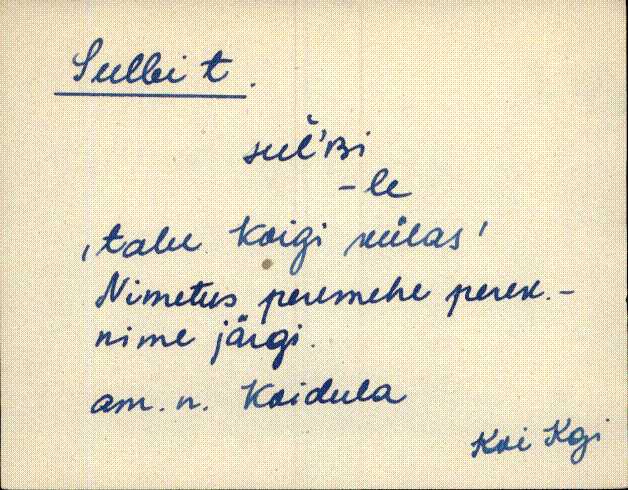 Sulbi t.
sul̆'ʙi
-le
'talu Koigi külas'
Nimetus peremehe perek.-
nime järgi.
am. n. Koidula
Koi Kgi